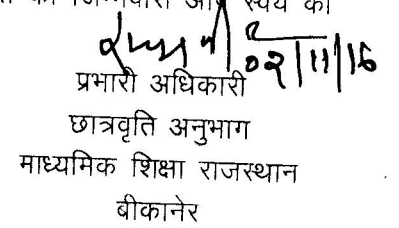 जिम्मेवारी आप स्वयं की
02/11/16
प्रभारी अधिकारी
छात्रवृति अनुभाग
माध्यमिक शिक्षा राजस्थान
बीकानेर